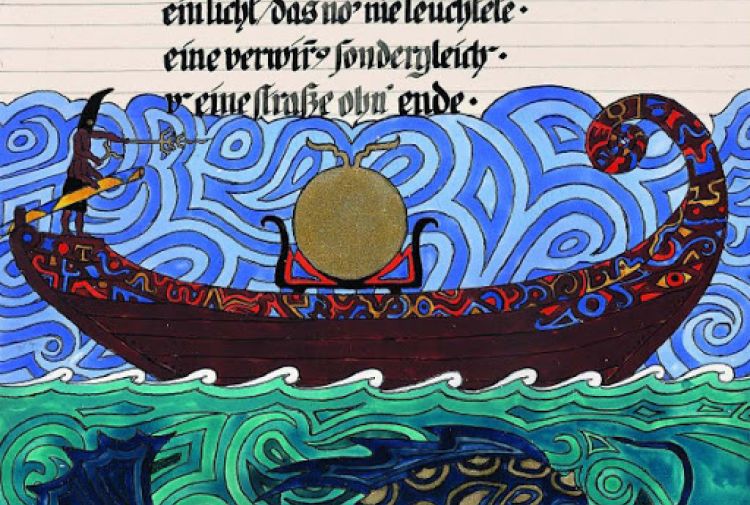 ein licht/das no' nie leuchtete ·
eine sondergleich' ·
v' eine straße ohn' ende ·